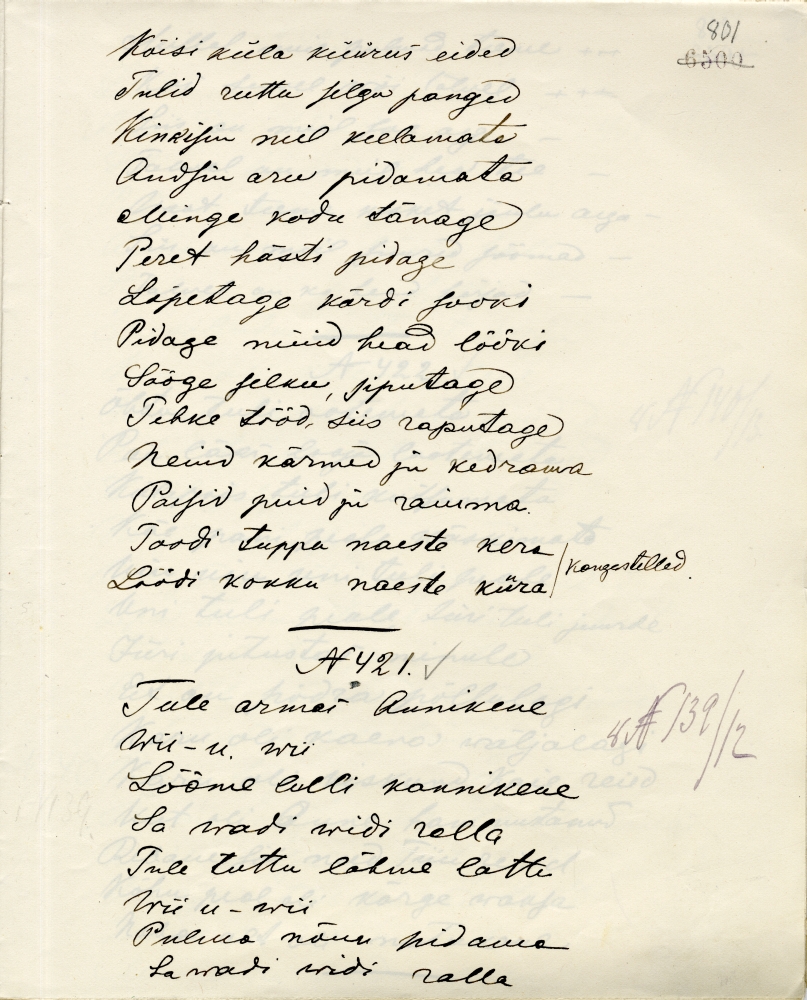 801
6500
Köisi küla küürus eided
Tulid ruttu silgu panged
Kinkisin neil keelamata
Andsin aru pidamata
Minge kodu tänage
Peret hästi pidage
Löpetage kördi sööki
Pidage nüüd head lööki
Sööge silku, siputage
Tehke tööd, siis raputage
Neiud kärmed ju kedrama
Poisid puid ju raiuma.
Toodi tuppa naeste kera
Löödi kokku naeste küra
kangastelled.
N 421.
Tule armas Annikene
Wii-u. wii
Lööme lulli kannikene
Sa wadi widi ralla
Tule tuttu lähme latti
Wii u-wii
Pulma nõnu pidama
Sa wadi widi ralla
8 N 139/12